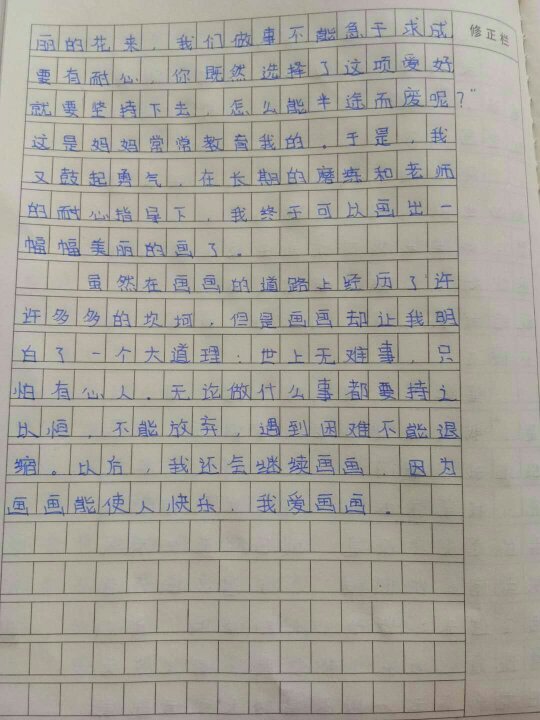 修正栏
丽的花来，我们做事不能急于求成
要有耐心，你既然选择了这项爱好
就要坚持下去，怎么能半途而废呢？”
这是妈妈常常教育我的。于是，我
又鼓起勇气，在长期的磨练和老师
的耐心指导下，我终于可以画出一
幅幅美丽的画了。
虽然在画画的道路上经历了许
许多多的坎坷，但是画画却让我明
白了一个大道理：世上无难事，只
怕有心人。无论做什么事都要持之
以恒，不能放弃，遇到困难不能退
缩。以后，我还会继续画画，因为
画画能使人快乐，我爱画画。